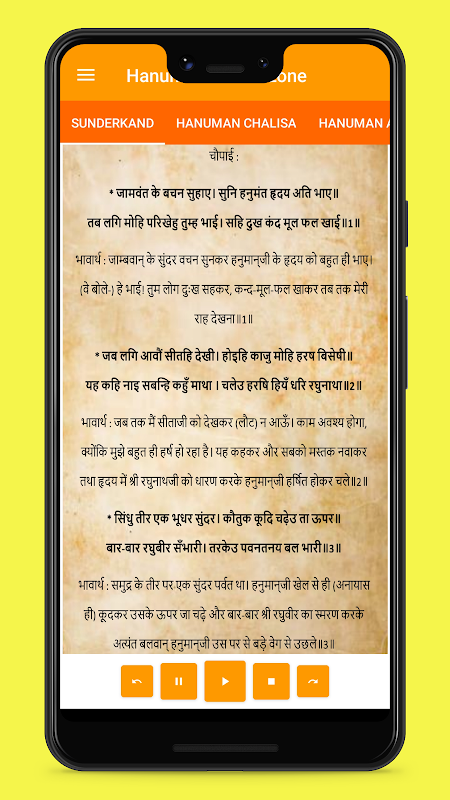 Hanum one
SUNDERKAND HANUMAN CHALISA HANUMAN A
चौपाई :
* जामवंत के बचन सुहाए। सुनि हनुमंत हृदय अति भाए॥
तब लगि मोहि परिखेहु तुम्ह भाई। सहि दुख कंद मूल फल खाई॥1॥
भावार्थ : जाम्बवान् के सुंदर वचन सुनकर हनुमान्‌जी के हृदय को बहुत ही भाए।
(वे बोले-) हे भाई! तुम लोग दुःख सहकर, कन्द-मूल-फल खाकर तब तक मेरी
राह देखना॥1॥
* जब लगि आवौं सीतहि देखी। होइहि काजु मोहि हरष बिसेषी॥
यह कहि नाइ सबन्हि कहुँ माथा । चलेउ हरषि हियँ धरि रघुनाथा॥2॥
भावार्थ : जब तक मैं सीताजी को देखकर (लौट) न आऊँ। काम अवश्य होगा,
क्योंकि मुझे बहुत ही हर्ष हो रहा है। यह कहकर और सबको मस्तक नवाकर
तथा हृदय में श्री रघुनाथजी को धारण करके हनुमान्‌जी हर्षित होकर चले॥2॥
* सिंधु तीर एक भूधर सुंदर। कौतुक कूदि चढ़ेउ ता ऊपर॥
बार-बार रघुबीर सँभारी। तरकेउ पवनतनय बल भारी॥3॥
भावार्थ : समुद्र के तीर पर एक सुंदर पर्वत था। हनुमान्‌जी खेल से ही (अनायास
ही) कूदकर उसके ऊपर जा चढ़े और बार-बार श्री रघुवीर का स्मरण करके
अत्यंत बलवान् हनुमान्‌जी उस पर से बड़े वेग से उछले॥3॥